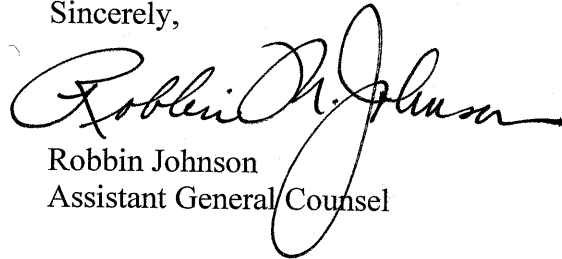 Sincerely,
Robbin M. Johnson
Robbin Johnson
Assistant General Counsel